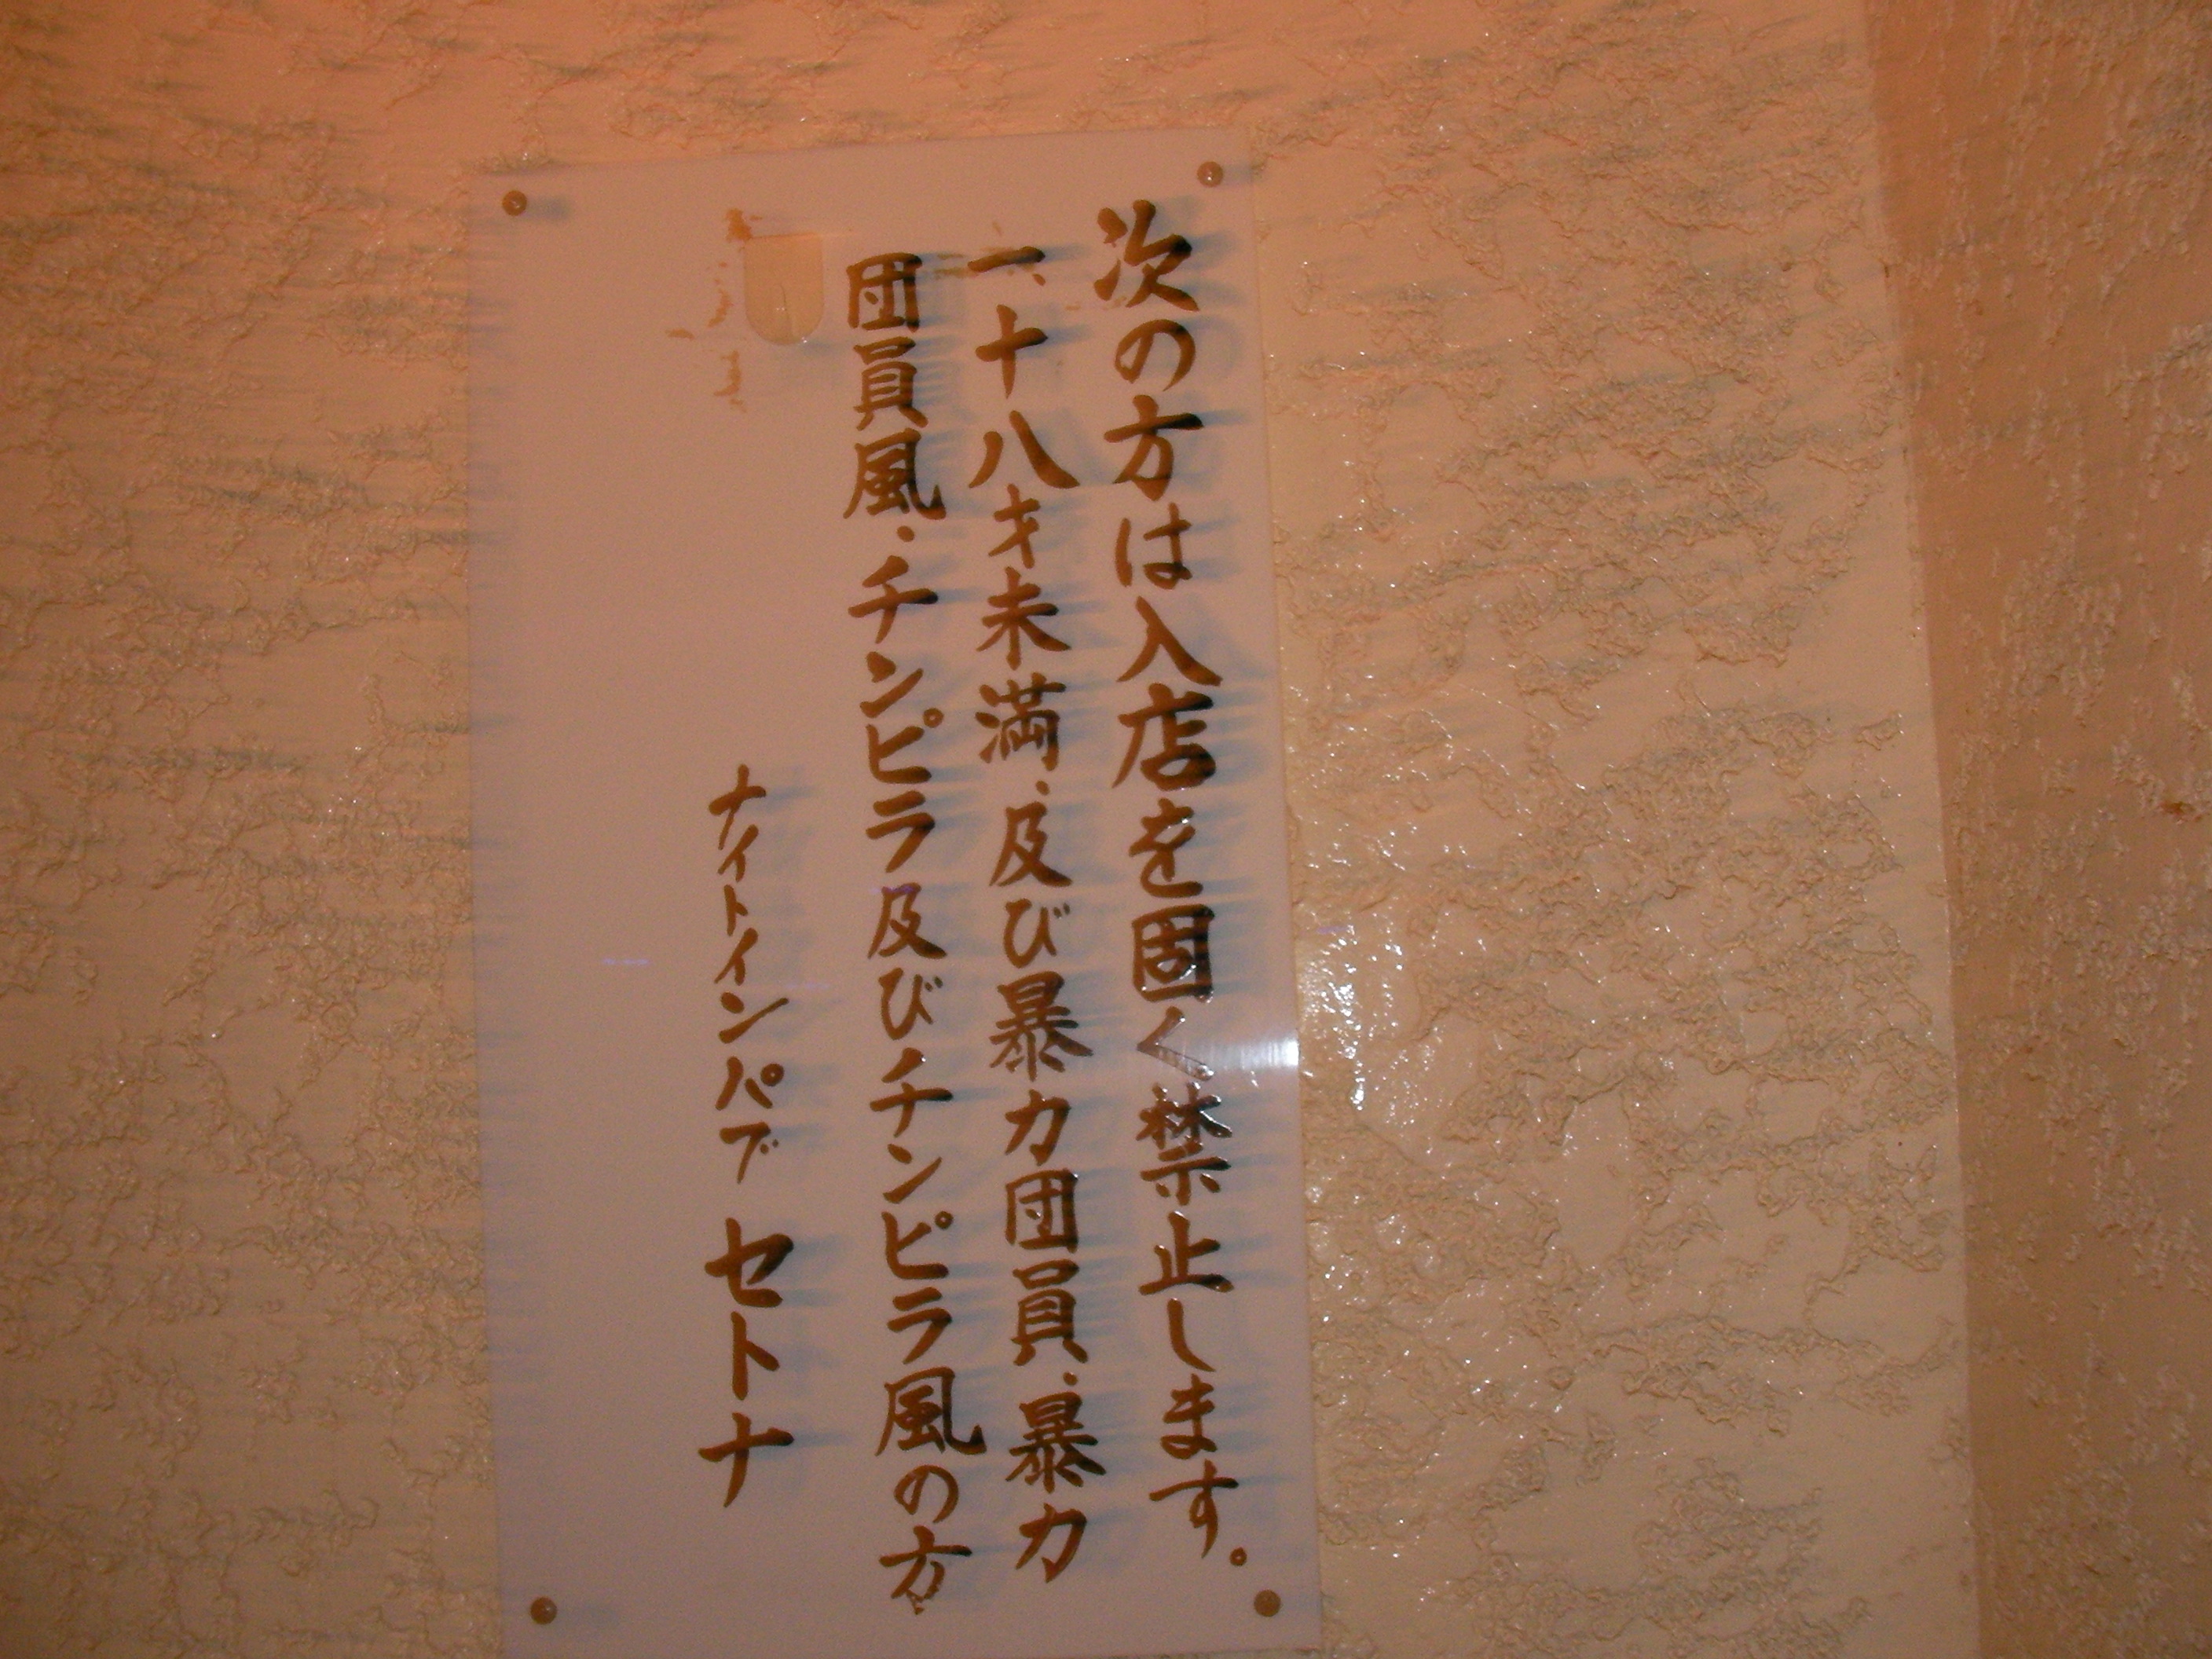 次の方は入店を固く禁止します。
一、十八才未満・及び暴力団員・暴力
団員風・チンピラ及びチンピラ風の方
ナイトインパブ セトナ